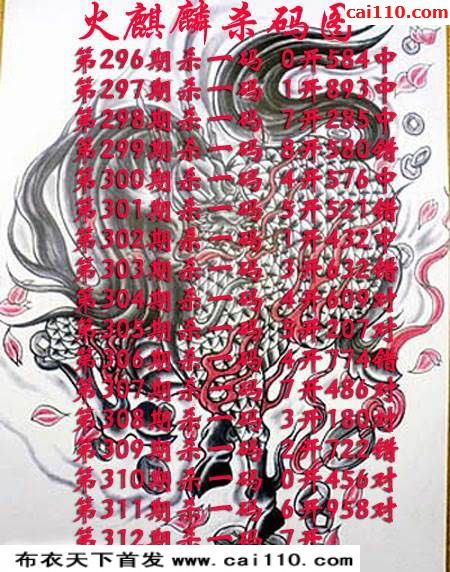 cai110.com
火麒麟杀码图
第296期杀一码 0开584中
第297期杀一码 1开893中
第298期杀一码 7开285中
第299期杀一码 8开580错
第300期杀一码 4开576中
第301期杀一码 5开521错
第302期杀一码 1开432中
第303期杀一码 3开632错
第304期杀一码 4开609对
第305期杀一码 5开207对
第306期杀一码 4开774错
第307期杀一码 7开486对
第308期杀一码 3开180对
第309期杀一码 2开722错
第310期杀一码 0开456对
第311期杀一码 6开958对
第312期杀一码 7开
布衣天下首发 www.cai110.com